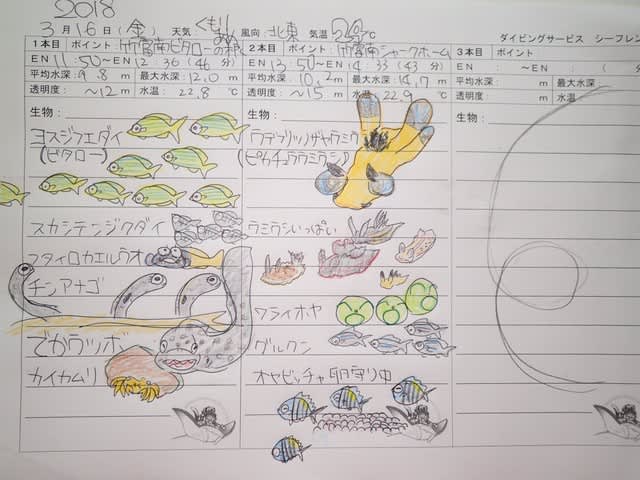 2018
3月16日(金) 天気 くもり 風向 北東 気温 ℃ ダイビングサービス シーフレン
1本目 ポイント 竹富南ビタローの根 2本目 ポイント 竹富南シャークホーム 3本目 ポイント
EN 11:50~EN 12:36 (46分) EN 13:50~EN 14:33 (43分) EN : ~EN : (
平均水深: 9.8 m 最大水深: 12.0 m 平均水深: 10.2 m 最大水深: 14.7 m 平均水深: m 最大水深:
透明度: ~12 m 水温: 22.8 ℃ 透明度: ~15 m 水温: 22.9 ℃ 透明度: m 水温:
生物: 生物: 生物:
ヨスジフエダイ
(ビタロー) (ピカチュウウミウシ)
スカシテンジクダイ ウミウシいっぱい
フタイロカエルウオ
チンアナゴ
ワライホヤ
でかウツボ グルクン
カイカムリ オヤビッチャ 卵守り中